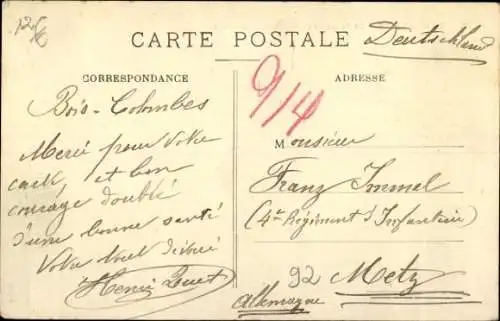 125
CARTE POSTALE
Deutschland
CORRESPONDANCE
ADRESSE
9/4
Bois-Colombes
Merci pour votre
carte et bon
courage doublé
d'une bonne santé
Votre tout dévoué
Henri
Monsieur
Franz Immel
(4e Régiment d'Infanterie)
92 Metz
Allemagne